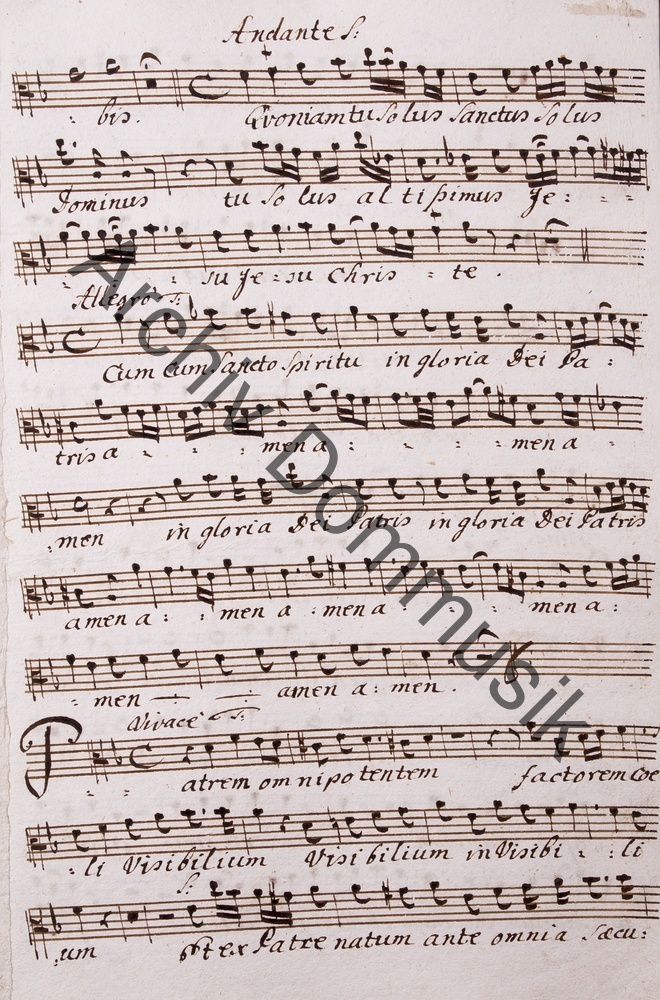 Andante S:
: bis. Qvoniam tu solus Sanctus Solus
Dominus tu So lus al tißimus Je : = =
- : : su Je = su Chris = te .
Allegro S:
Cum Cum Sancto Spiritu in gloria Dei Pa :
tris a = : = men a : : : : men a
: men in gloria Dei Patris in gloria Dei Patris
amen a : : men a : men a : : : men a :
= men amen a : men .
Vivace S:
Patrem omnipotentem factorem Coe
: li Visibilium Visi bilium in Visibi = : li
S:
: um et ex Patre natum ante omnia Sæcu :
Archiv Dommusik